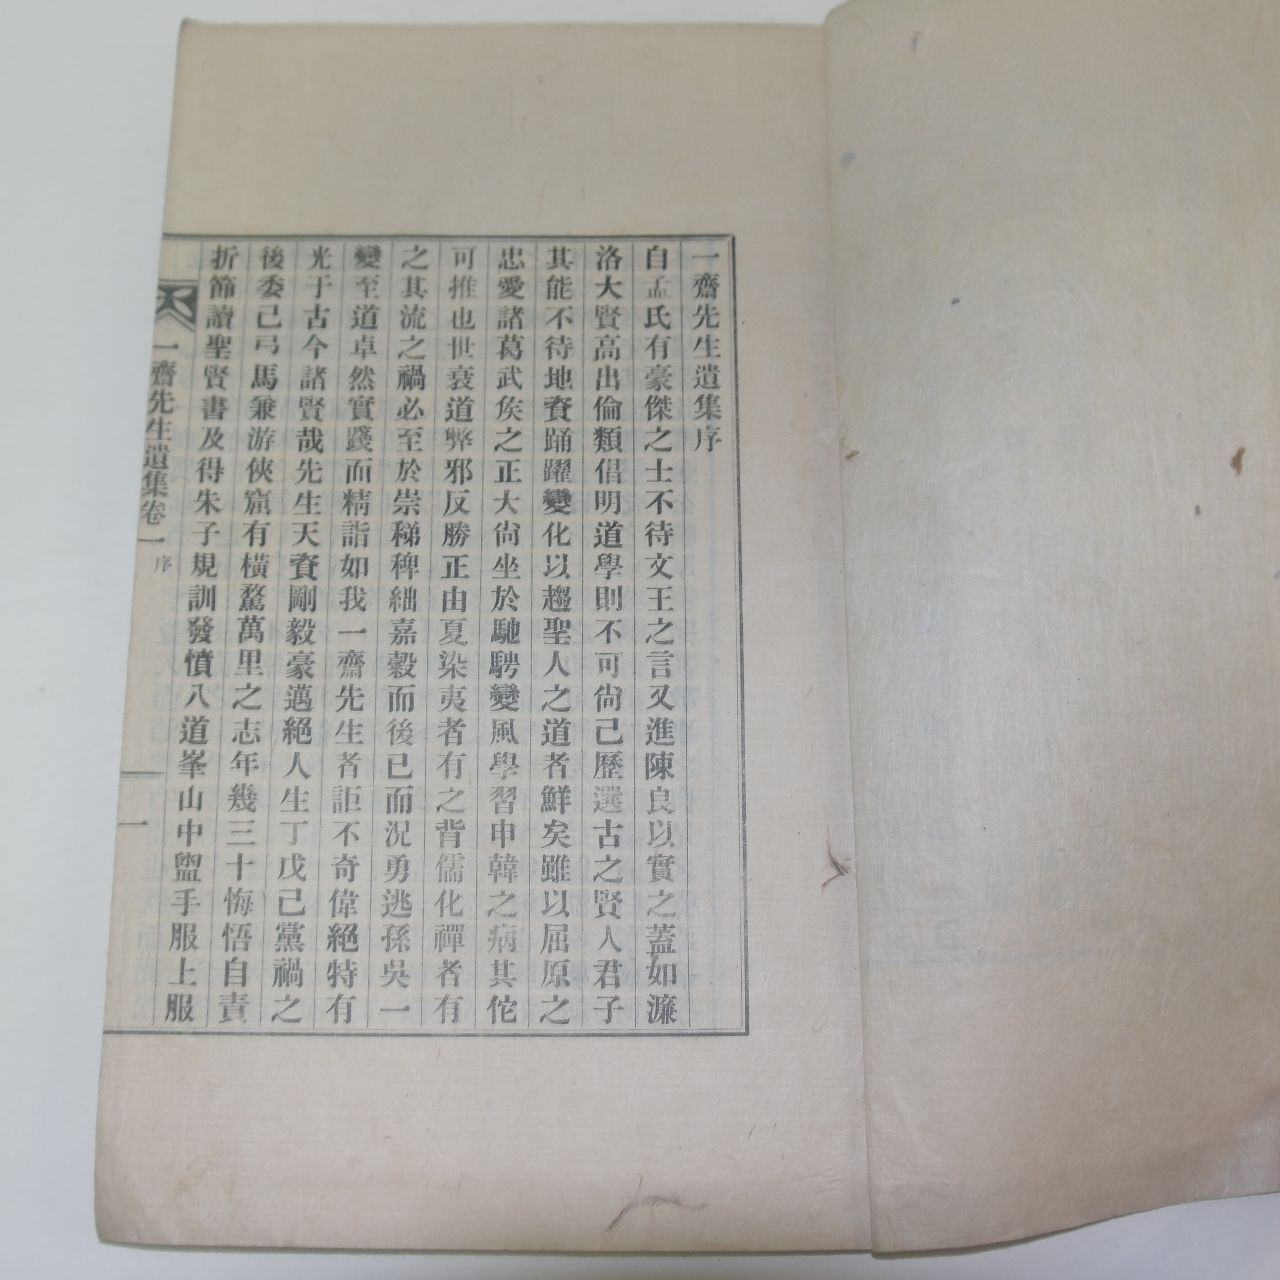 一齋先生遺集序
自孟氏有豪傑之士不待文王之言又進陳良以實之蓋如濂
洛大賢高出倫類倡明道學則不可尙已歷選古之賢人君子
其能不待地資踊躍變化以趨聖人之道者鮮矣雖以屈原之
忠愛諸葛武矦之正大尙坐於馳騁變風學習申韓之病其佗
可推也世衰道弊邪反勝正由夏染夷者有之背儒化禪者有
之其流之禍必至於崇稊稗絀嘉穀而後已而況勇逃孫吳一
變至道卓然實踐而精詣如我一齋先生者詎不奇偉絕特有
光于古今諸賢哉先生天資剛毅豪邁絕人生丁戊己黨禍之
後委己弓馬兼游俠窟有橫騖萬里之志年幾三十悔悟自責
折節讀聖賢書及得朱子規訓發憤八道峯山中盥手服上服
一齋先生遺集卷一
序
一